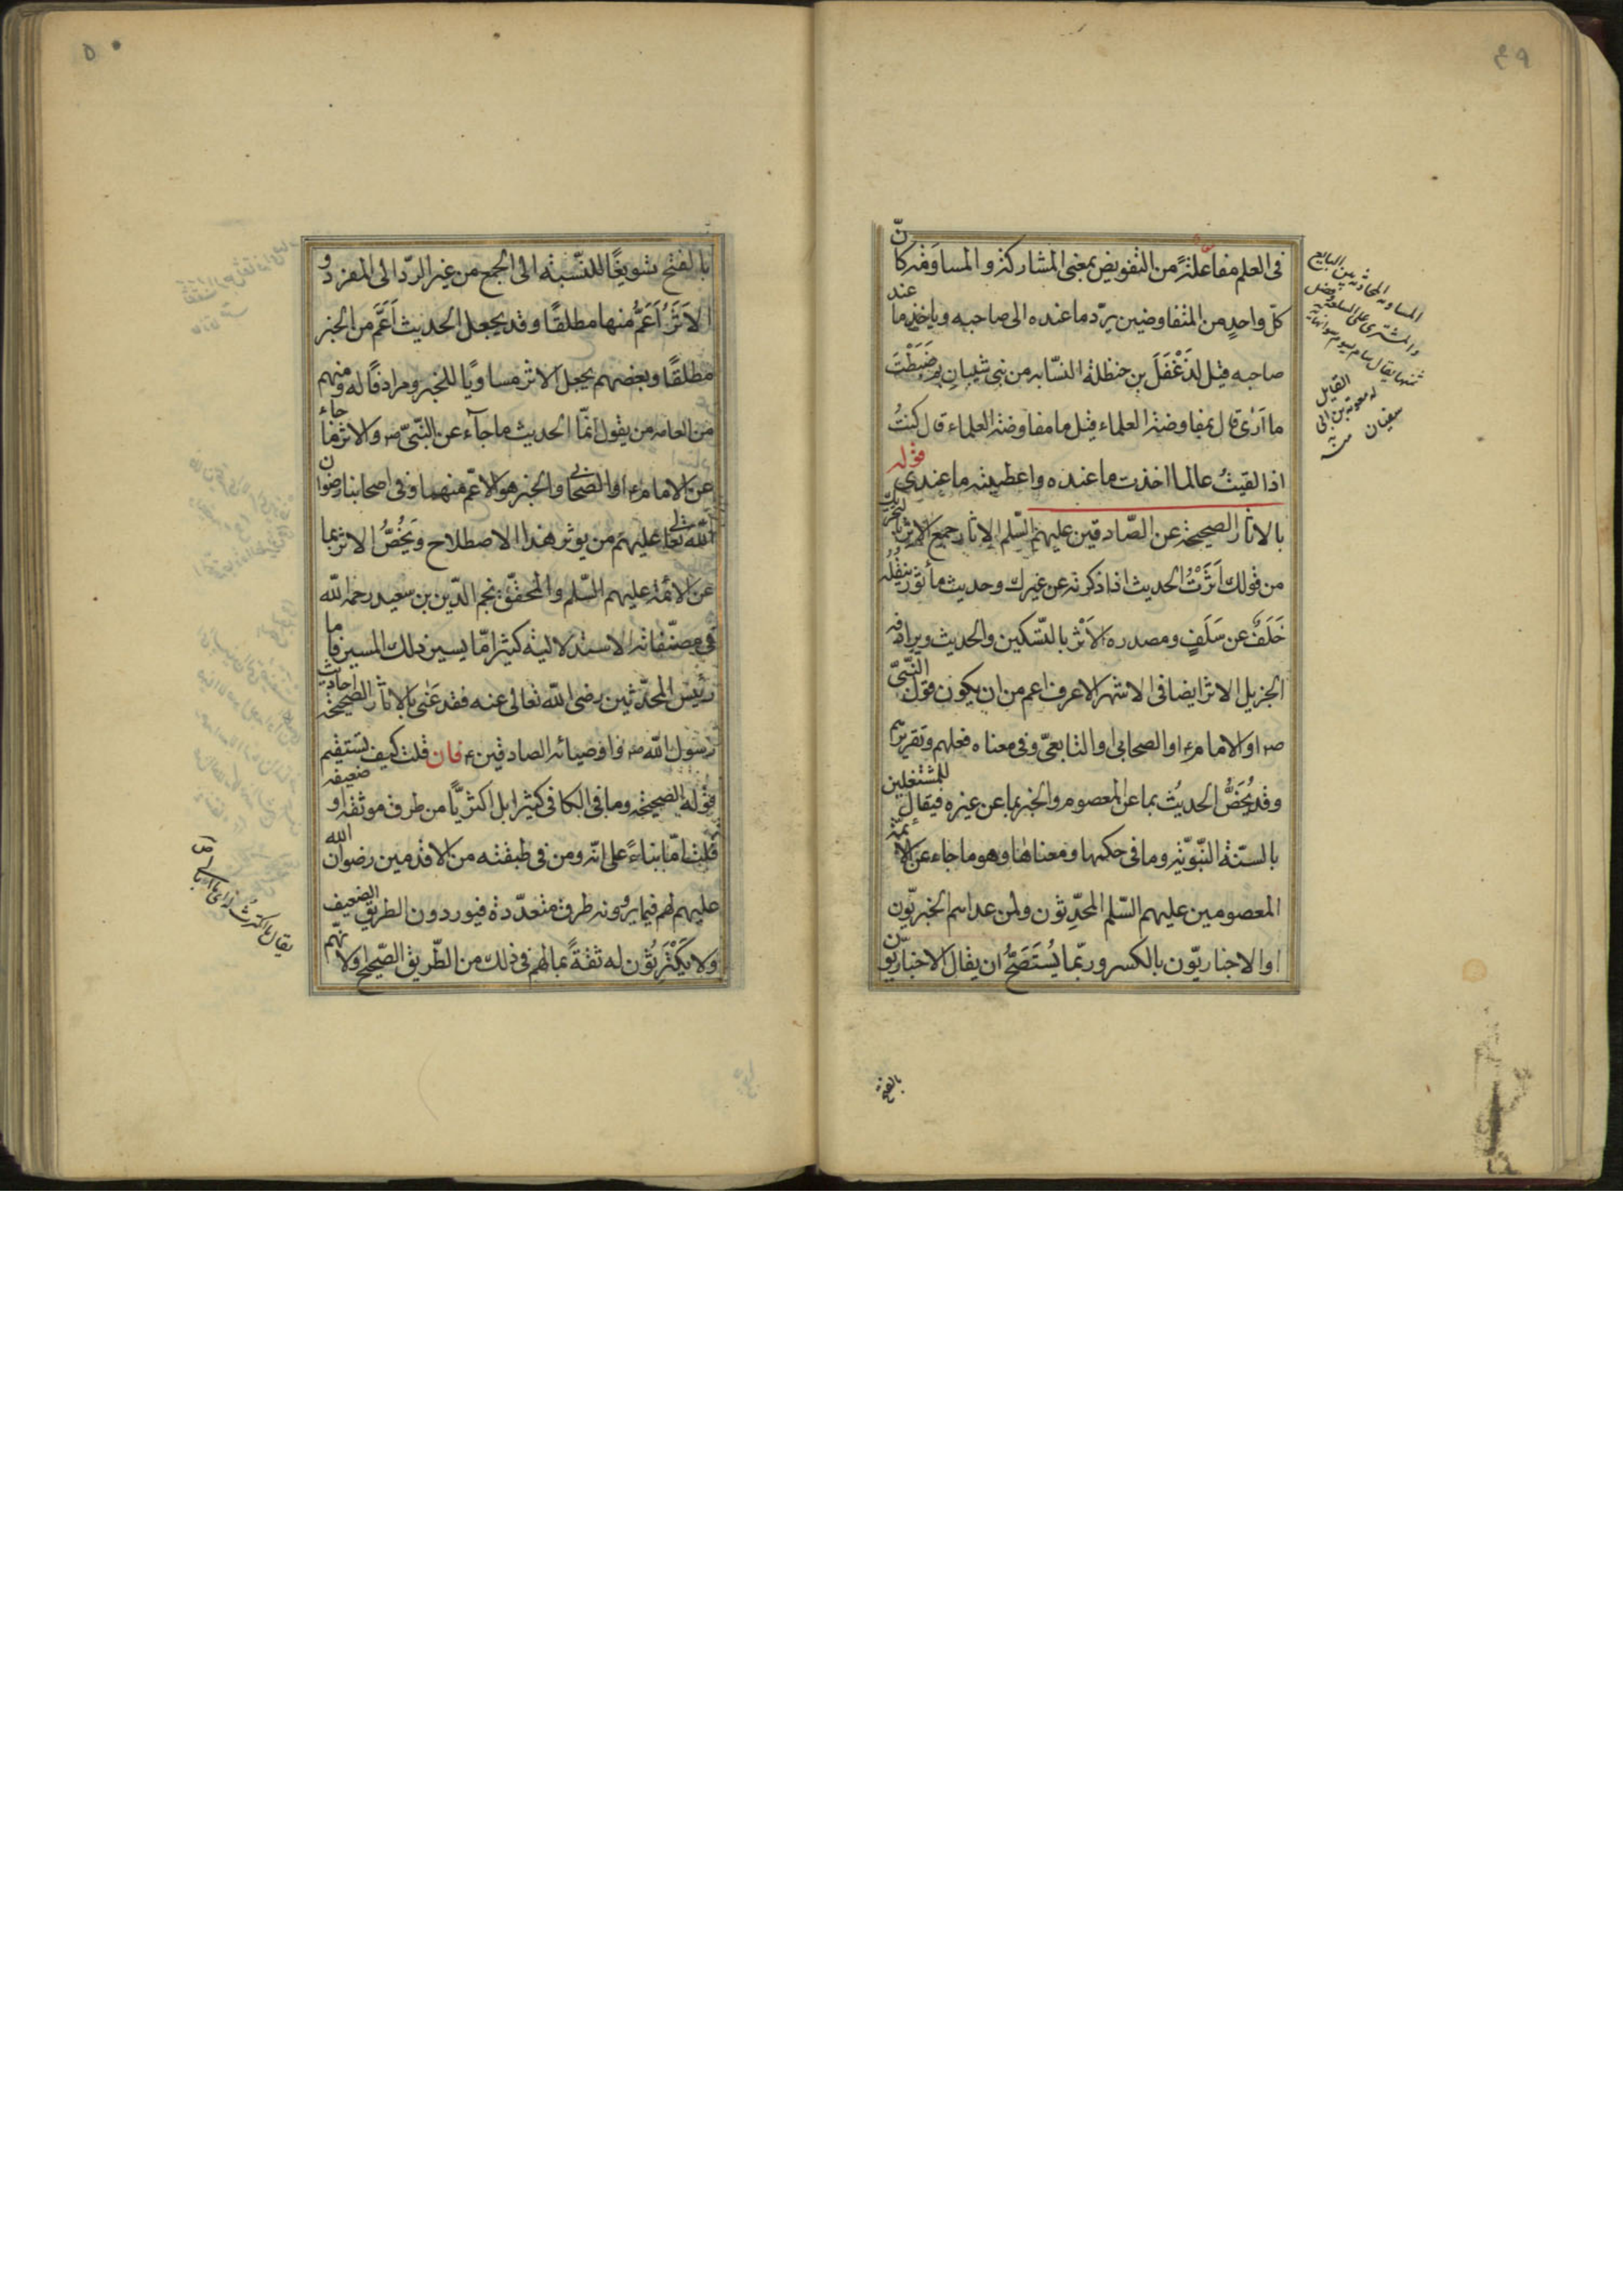 ٤٩
فى العلم مفاعلة من التفويض بمعنى المشاركة والمساوقة كانّ
كلّ واحدٍ من المتفاوضين يردّ ما عنده الى صاحبه وياخذ ما عند
صاحبه قيل لدَغْفَلَ بن حنظلة النسّابه من بنى شيبان بم ضَبَطْتَ
ما اَرَى قال بمفاوضة العلماء قيل ما مفاوضة العلماء قال كنتُ
اذا لقيتُ عالما اخذت ما عنده واعطيته ما عندى قوله
بالاثار الصحيحة عن الصّادقين عليهم السّلم الاثار جميع الاثر بالتحريك
من قولك اَثَرْتُ الحديث اذا ذكرته عن غيرك وحديث مأثور ينقُلُه
خَلَفٌ عن سَلَفٍ ومصدره الاَثْر بالتّسكين والحديث ويرادفه
الاثر ايضا فى الاشهر الاعرف اعم من ان يكون قول النّبىّ
ص او الامام ع او الصحابى او التابعىّ وفى معناه فعلهم وتقريرهم
وقد يُخَصُّ الحديثُ بما عن المعصوم والخبر بما عن غيره فيقال للمشتغلين
بالسنّة النّبويّة وما فى حكمها ومعناها وهو ما جاء عن الائمّة
المعصومين عليهم السّلم المحدِّثون ولمن عداهم الخبريّون
او الاخباريّون بالكسر وربّما يُسْتَصَحُّ ان يقال الاخباريّون
القايل
له معوية بن ابى
سفيان منه
بالفتح
٥٠
بالفتح تسويغًا للنّسبة الى الجمع من غير الردّ الى المفرد و
الاَثَرُ اَعَمُّ منها مطلقًا وقد يجعل الحديث اَعَمَّ من الخبر
مطلقًا وبعضهم يجعل الاثر مساويًا للخبر ومرادفًا له ومنهم
من العامه من يقول انمّا الحديث ما جآء عن النّبىّ ص والاثر ما جاء
عن الامام ع او الصّحابى والخبر هو الاعمّ منهما وفى اصحابنا رضوان
اللّه تعالى عليهم من يوثر هذا الاصطلاح ويَخُصُّ الاثر بما
عن الائمّة عليهم السّلم والمحقّق نجم الدّين بن سعيد رحمه اللّه
فى مصنّفاته الاستدلاليّة كثيرا مّا يسير ذلك المسير فاما
رئيس المحدّثين رضى اللّه تعالى عنه فقد عَنٰى بالاثار الصّحيحة احاديث
رسول اللّه ص واوصيائه الصادقين ع فان قلت كيف يستقيم
قوله الصحيحة وما فى الكافى كثيرا بل اكثريًّا من طرف موثقه او ضعيفه
قلت امّا بناءً على انّه ومن فى طبقته من الاقدمين رضوان الله
عليهم لهم فيما يروونه طرق متعدّدة فيوردون الطريق الضعيف
ولا يَكْتَرِثُون له ثقةً بما لهم فى ذلك من الطّريق الصّحيح ولانّهم
يقال ما اكترثُ له اى ما ابالى به ص